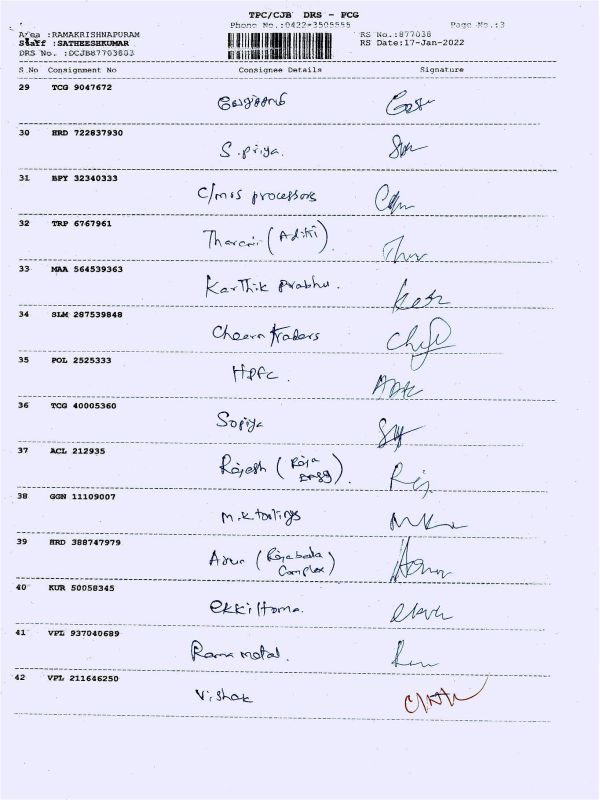 TPC/CJB DRS - PCG
Phone No.:0422-3505555 Page No.:3
Area :RAMAKRISHNAPURAM RS No.:877038
Staff :SATHEESHKUMAR RS Date:17-Jan-2022
DRS No. :DCJB87703803
S.No Consignment No Consignee Details Signature
29 TCG 9047672
30 HRD 722837930
S. priya.
31 BPY 32340333
C/mis processors
32 TRP 6767961
Tharani (Aditi)
33 MAA 564539363
Karthik prabhu.
34 SLM 287539848
Cheeran Traders
35 POL 2525333
HDFC.
36 TCG 40005360
Sopiya
37 ACL 212935
Rajesh (Raja
38 GGN 11109007
M.K toolings
39 HRD 388747979
Arun (Rajabala
Complex)
40 KUR 50058345
ekki Homa.
41 VPL 937040689
Rama metal.
42 VPL 211646250
Vishak